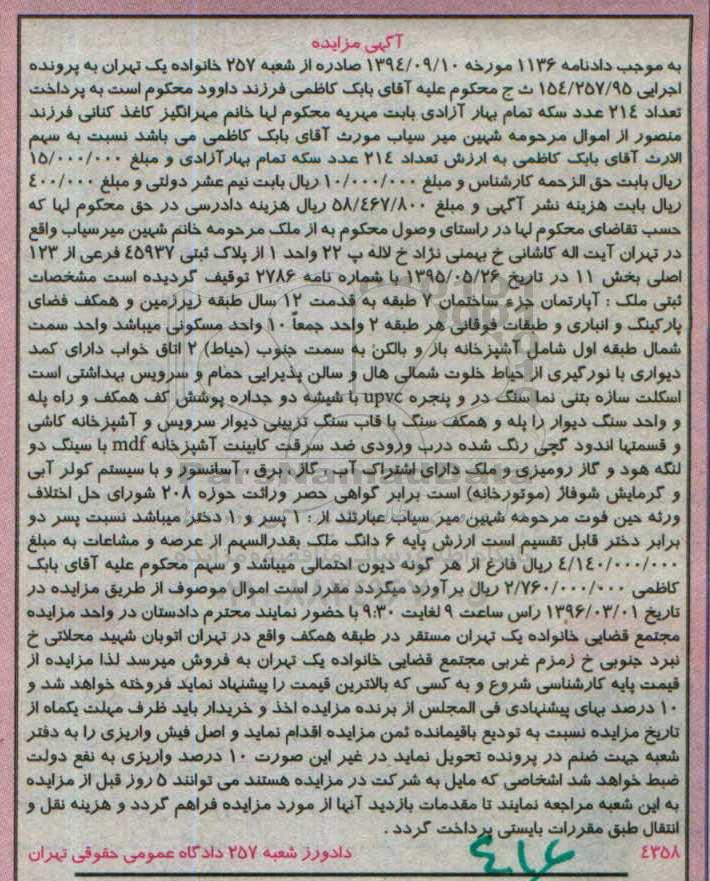 آگهی مزایده
به موجب دادنامه ۱۱۳۶ مورخه ۱۳۹٤/۰۹/۱۰ صادره از شعبه ۲۵۷ خانواده یک تهران به پرونده
اجرایی ۱۵٤/۲۵۷/۹۵ ث ج محکوم علیه آقای بابک کاظمی فرزند داوود محکوم است به پرداخت
تعداد ۲۱٤ عدد سکه تمام بهار آزادی بابت مهریه محکوم لها خانم مهرانگیز کاغذ کنانی فرزند
منصور از اموال مرحومه شهین میر سیاب مورث آقای بابک کاظمی می باشد نسبت به سهم
الارث آقای بابک کاظمی به ارزش تعداد ۲۱٤ عدد سکه تمام بهارآزادی و مبلغ ۱۵/۰۰۰/۰۰۰
ریال بابت حق الزحمه کارشناس و مبلغ ۱۰/۰۰۰/۰۰۰ ریال بابت نیم عشر دولتی و مبلغ ٤۰۰/۰۰۰
ریال بابت هزینه نشر آگهی و مبلغ ۵۸/٤۶۷/۸۰۰ ریال هزینه دادرسی در حق محکوم لها که
حسب تقاضای محکوم لها در راستای وصول محکوم به از ملک مرحومه خانم شهین میرسیاب واقع
در تهران آیت اله کاشانی خ بهمنی نژاد خ لاله پ ۲۲ واحد ۱ از پلاک ثبتی ٤۵۹۳۷ فرعی از ۱۲۳
اصلی بخش ۱۱ در تاریخ ۱۳۹۵/۰۵/۲۶ با شماره نامه ۲۷۸۶ توقیف گردیده است مشخصات
ثبتی ملک : آپارتمان جزء ساختمان ۷ طبقه به قدمت ۱۲ سال طبقه زیرزمین و همکف فضای
پارکینگ و انباری و طبقات فوقانی هر طبقه ۲ واحد جمعاً ۱۰ واحد مسکونی میباشد واحد سمت
شمال طبقه اول شامل آشپزخانه باز و بالکن به سمت جنوب (حیاط) ۲ اتاق خواب دارای کمد
دیواری با نورگیری از حیاط خلوت شمالی هال و سالن پذیرایی حمام و سرویس بهداشتی است
اسکلت سازه بتنی نما سنگ در و پنجره upvc با شیشه دو جداره پوشش کف همکف و راه پله
و واحد سنگ دیوار را پله و همکف سنگ با قاب سنگ تزیینی دیوار سرویس و آشپزخانه کاشی
و قسمتها اندود گچی رنگ شده درب ورودی ضد سرقت کابینت آشپزخانه mdf با سینک دو
لنگه هود و گاز رومیزی و ملک دارای اشتراک آب ، گاز ، برق ، آسانسور و با سیستم کولر آبی
و گرمایش شوفاژ (موتورخانه) است برابر گواهی حصر وراثت حوزه ۲۰۸ شورای حل اختلاف
ورثه حین فوت مرحومه شهین میر سیاب عبارتند از : ۱ پسر و ۱ دختر میباشد نسبت پسر دو
برابر دختر قابل تقسیم است ارزش پایه ۶ دانگ ملک بقدرالسهم از عرصه و مشاعات به مبلغ
٤/۱٤۰/۰۰۰/۰۰۰ ریال فارغ از هر گونه دیون احتمالی میباشد و سهم محکوم علیه آقای بابک
کاظمی ۲/۷۶۰/۰۰۰/۰۰۰ ریال برآورد میگردد مقرر است اموال موصوف از طریق مزایده در
تاریخ ۱۳۹۶/۰۳/۰۱ راس ساعت ۹ لغایت ۹:۳۰ با حضور نمایند محترم دادستان در واحد مزایده
مجتمع قضایی خانواده یک تهران مستقر در طبقه همکف واقع در تهران اتوبان شهید محلاتی خ
نبرد جنوبی خ زمزم غربی مجتمع قضایی خانواده یک تهران به فروش میرسد لذا مزایده از
قیمت پایه کارشناسی شروع و به کسی که بالاترین قیمت را پیشنهاد نماید فروخته خواهد شد و
۱۰ درصد بهای پیشنهادی فی المجلس از برنده مزایده اخذ و خریدار باید ظرف مهلت یکماه از
تاریخ مزایده نسبت به تودیع باقیمانده ثمن مزایده اقدام نماید و اصل فیش واریزی را به دفتر
شعبه جهت ضنم در پرونده تحویل نماید در غیر این صورت ۱۰ درصد واریزی به نفع دولت
ضبط خواهد شد اشخاصی که مایل به شرکت در مزایده هستند می توانند ۵ روز قبل از مزایده
به این شعبه مراجعه نمایند تا مقدمات بازدید آنها از مورد مزایده فراهم گردد و هزینه نقل و
انتقال طبق مقررات بایستی پرداخت گردد .
٤۳۵۸ دادورز شعبه ۲۵۷ دادگاه عمومی حقوقی تهران